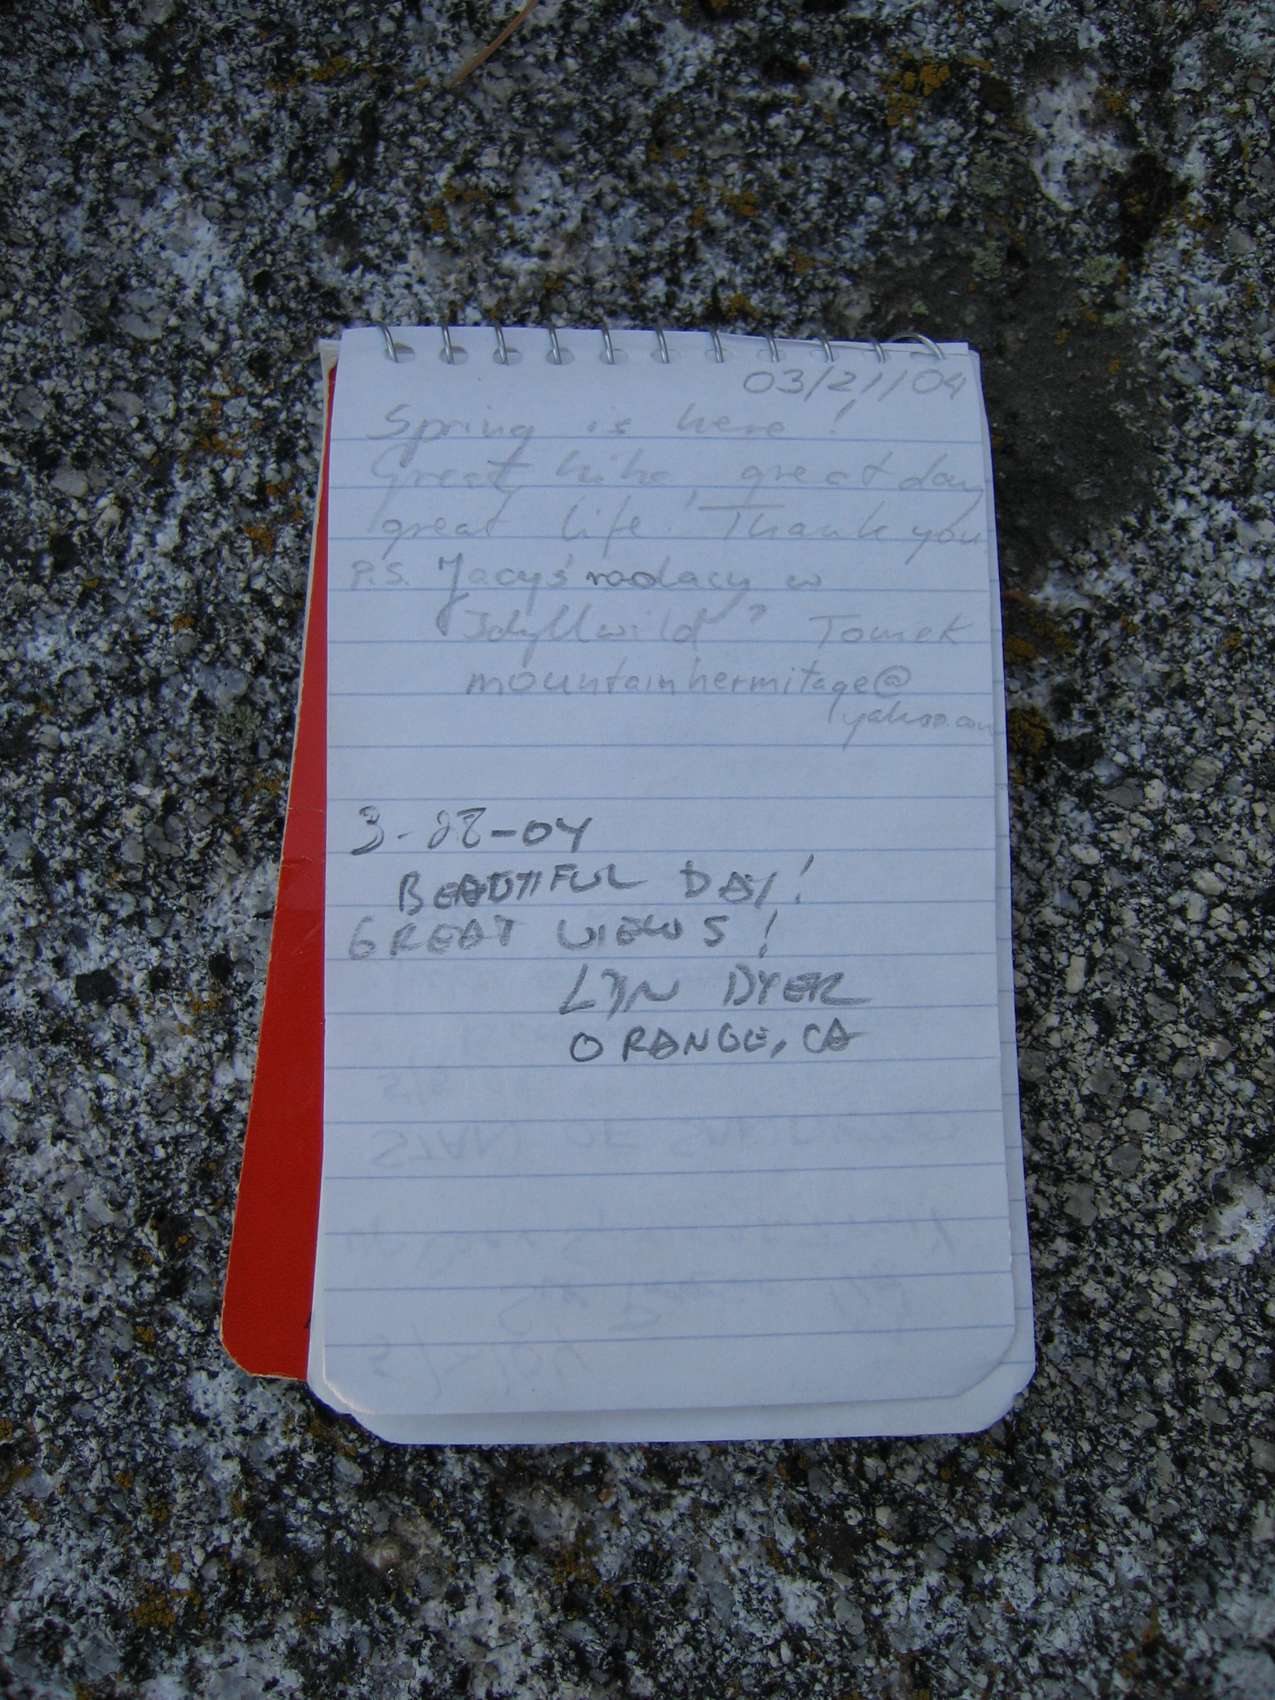 03/21/04
Spring is here!
Great hike, great day
great life. Thank you
P.S. Jacyś rodacy w
Idyllwild? Tomek
mountainhermitage@
yahoo.com
3-28-04
BEAUTIFUL DAY!
GREAT VIEWS!
LYN DYER
ORANGE, CA